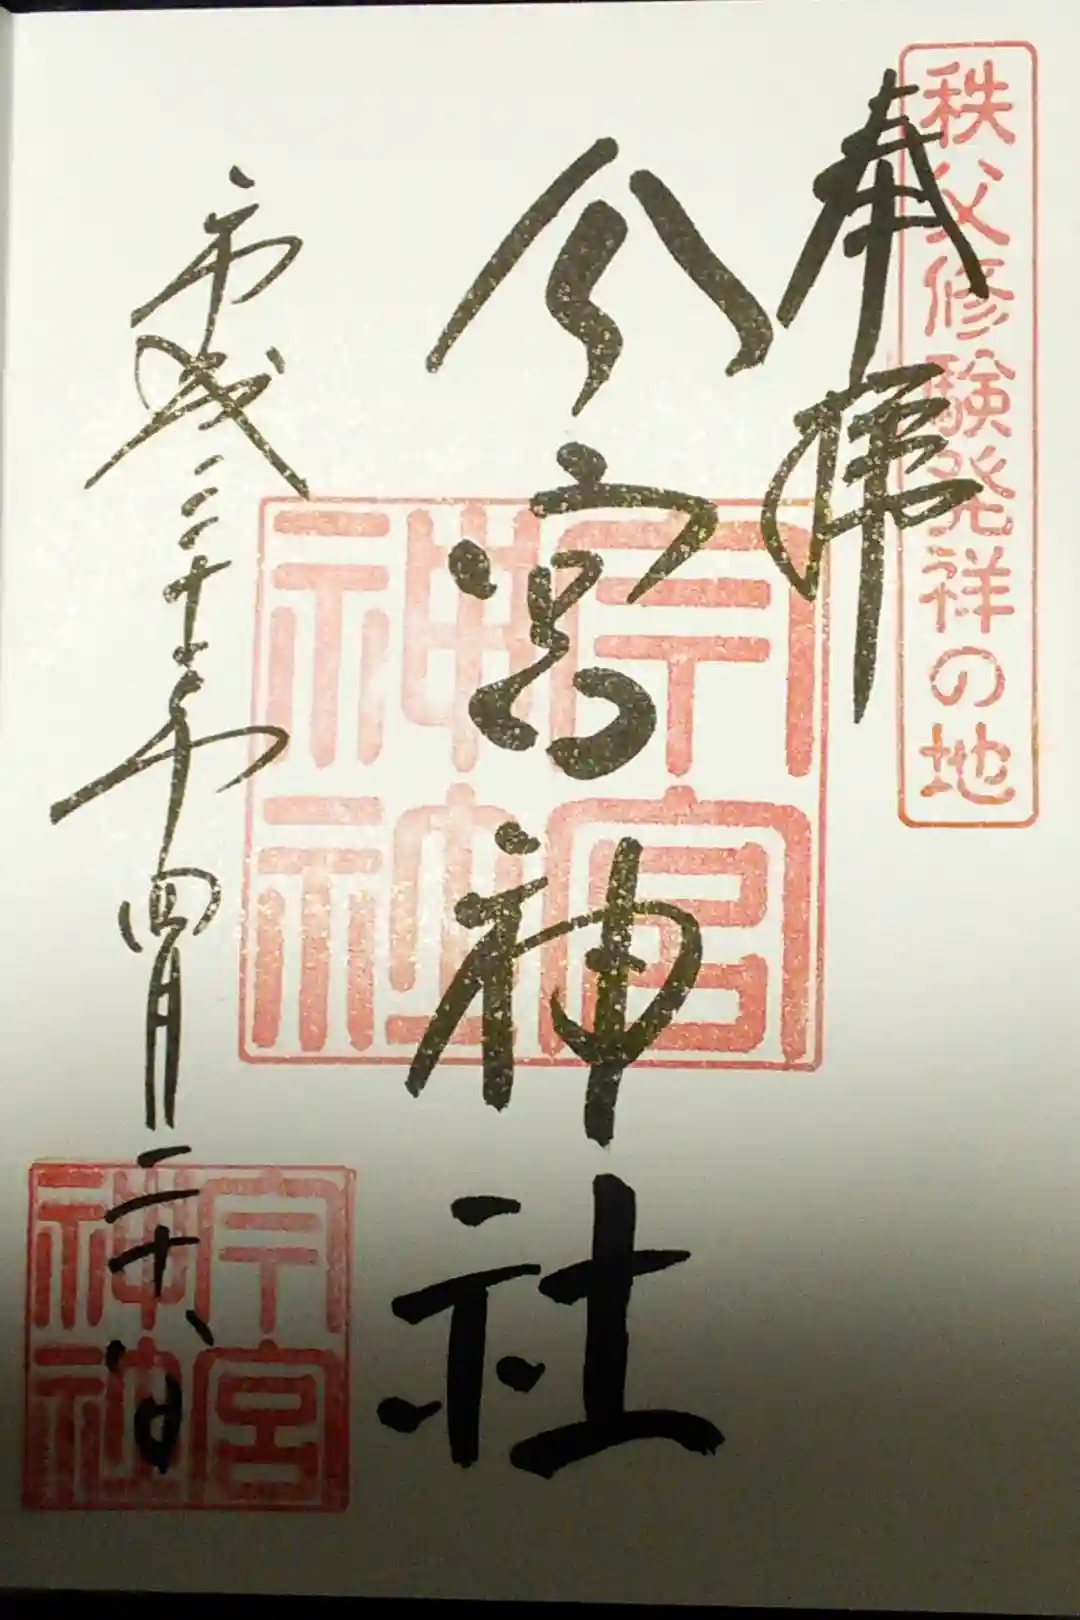 秩父修験発祥の地
奉拝
今宮神社
平成三十年四月二十八日
今宮神社
今宮神社